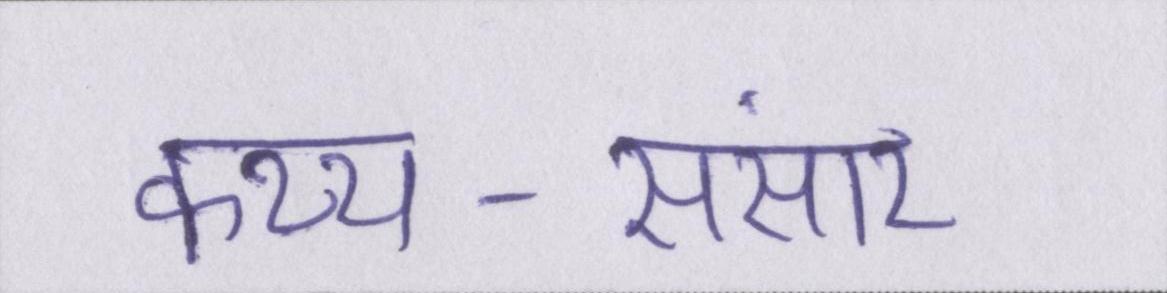 कथ्य - संसार